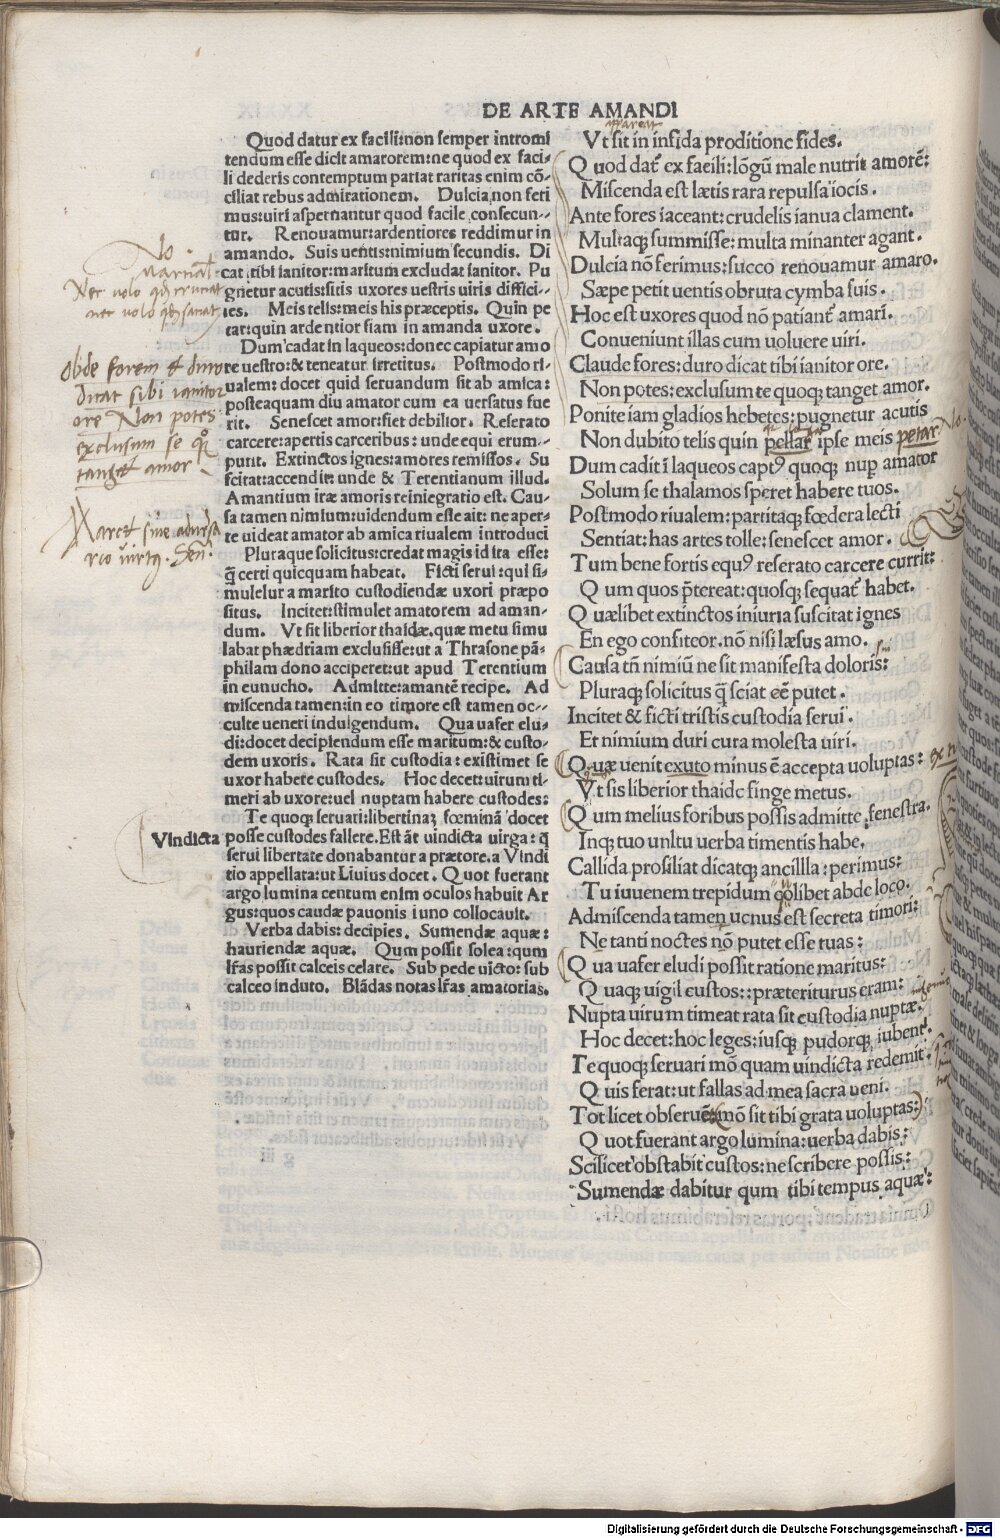 DE ARTE AMANDI
Quod datur ex facili: non semper intromi
tendum esse dicit amatorem: ne quod ex faci-
li dederis contemptum pariat raritas enim cõ-
ciliat rebus admirationem. Dulcia non feri
mus: uiri aspernantur quod facile consecun-
tur. Renouamur: ardentiores reddimur in
amando. Suis uentis: nimium secundis. Di
cat tibi ianitor: maritum excludat ianitor. Pu
gnetur acutis: sitis uxores uestris uiris diffici-
les. Meis telis: meis his præceptis. Quin pe
tar: quin ardentior fiam in amanda uxore.
Dum cadat in laqueos: donec capiatur amo
re uestro: & teneatur irretitus. Postmodo ri-
ualem: docet quid seruandum sit ab amica:
posteaquam diu amator cum ea uersatus fue
rit. Senescet amor: fiet debilior. Reserato
carcere: apertis carceribus: unde equi erum-
punt. Extinctos ignes: amores remissos. Su
scitat: accendit: unde & Terentianum illud.
Amantium iræ amoris reintegratio est. Cau-
sa tamen nimium: uidendum esse ait: ne aper-
te uideat amator ab amica riualem introduci
Pluraque solicitus: credat magis id ita esse:
q̃ certi quicquam habeat. Ficti serui: qui si-
mulelur a marito custodiendæ uxori præpo
situs. Incitet: stimulet amatorem ad aman-
dum. Vt sit liberior thaidæ. quæ metu simu
labat phædriam exclusisse: ut a Thrasone pã-
philam dono acciperet: ut apud Terentium
in eunucho. Admitte: amantẽ recipe. Ad
miscenda tamen: in eo timore est tamen oc-
culte ueneri indulgendum. Qua uafer elu-
di: docet decipiendum esse maritum: & custo-
dem uxoris. Rata sit custodia: existimet se
uxor habere custodes. Hoc decet: uirum ti-
meri ab uxore: uel nuptam habere custodes:
Te quoq; seruari: libertinaȝ fœminã docet
Vindicta posse custodes fallere. Est ãt uindicta uirga: q̃
serui libertate donabantur a prætore. a Vindi
tio appellata: ut Liuius docet. Quot fuerant
argo lumina centum enim oculos habuit Ar
gus: quos caudæ pauonis iuno collocauit.
Verba dabis: decipies. Sumendæ aquæ:
hauriendæ aquæ. Qum possit solea: qum
lr̃as possit calceis celare. Sub pede uicto: sub
calceo induto. Blãdas notas lr̃as amatorias.
No
Martial.
Nec uolo qđ cruciat
nec uolo qđ satiat
Obde forem et duro
dicat tibi ianitor
ore Non potes
exclusum te qͦꝫ
tanget amor
Marcet sine aduersa
rio uirtꝰ. Sen.
apparent
Vt sit in infida proditione fides.
Quod datʳ ex faeili: lõgũ male nutrit amorẽ:
Miscenda est lætis rara repulsa iocis.
Ante fores iaceant: crudelis ianua clament.
Multaq; summisse: multa minanter agant.
Dulcia nõ ferimus: succo renouamur amaro.
Sæpe petit uentis obruta cymba suis.
Hoc est uxores quod nõ patiantʳ amari.
Conueniunt illas cum uoluere uiri.
Claude fores: duro dicat tibi ianitor ore.
Non potes: exclusum te quoq; tanget amor.
Ponite iam gladios hebetes: pugnetur acutis
Non dubito telis quin pellar ipse meis petar
Dum cadit ĩ laqueos captꝰ quoq; nuꝑ amator
Solum se thalamos speret habere tuos.
Postmodo riualem: partitaq; fœdera lecti
Sentiat: has artes tolle: senescet amor.
Tum bene fortis equꝰ reserato carcere currit:
Qum quos p̃tereat: quosq; sequatʳ habet.
Quælibet extinctos iniuria suscitat ignes
En ego confiteor. nõ nisi læsus amo.
Causa tñ nimiũ ne sit manifesta doloris:
Pluraq; solicitus q̃ sciat eẽ putet.
Incitet & ficti tristis custodia serui.
Et nimium duri cura molesta uiri.
Quæ uenit exuto minus ẽ accepta uoluptas: ex t
Vt sis liberior thaide finge metus.
Qum melius foribus possis admitte fenestra.
Inq; tuo unltu uerba timentis habe.
Callida prosiliat dicatq; ancillla: perimus:
Tu iuuenem trepidum qolibet abde loco.
Admiscenda tamen uenus est secreta timori:
Ne tanti noctes nõ putet esse tuas:
Qua uafer eludi possit ratione maritus:
Quaq; uigil custos:: præteriturus eram:
Nupta uirum timeat rata sit custodia nuptæ.
Hoc decet: hoc leges: iusq; pudorq; iubent.
Te quoq; seruari mõ quam uindicta redemit.
Quis ferat: ut fallas ad mea sacra ueni.
Tot licet obseruẽt mõ sit tibi grata uoluptas:
Quot fuerant argo lumina: uerba dabis:
Scilicet obstabit custos: ne scribere possis:
Sumendæ dabitur qum tibi tempus aquæ:
Digitalisierung gefördert durch die Deutsche Forschungsgemeinschaft - DFG